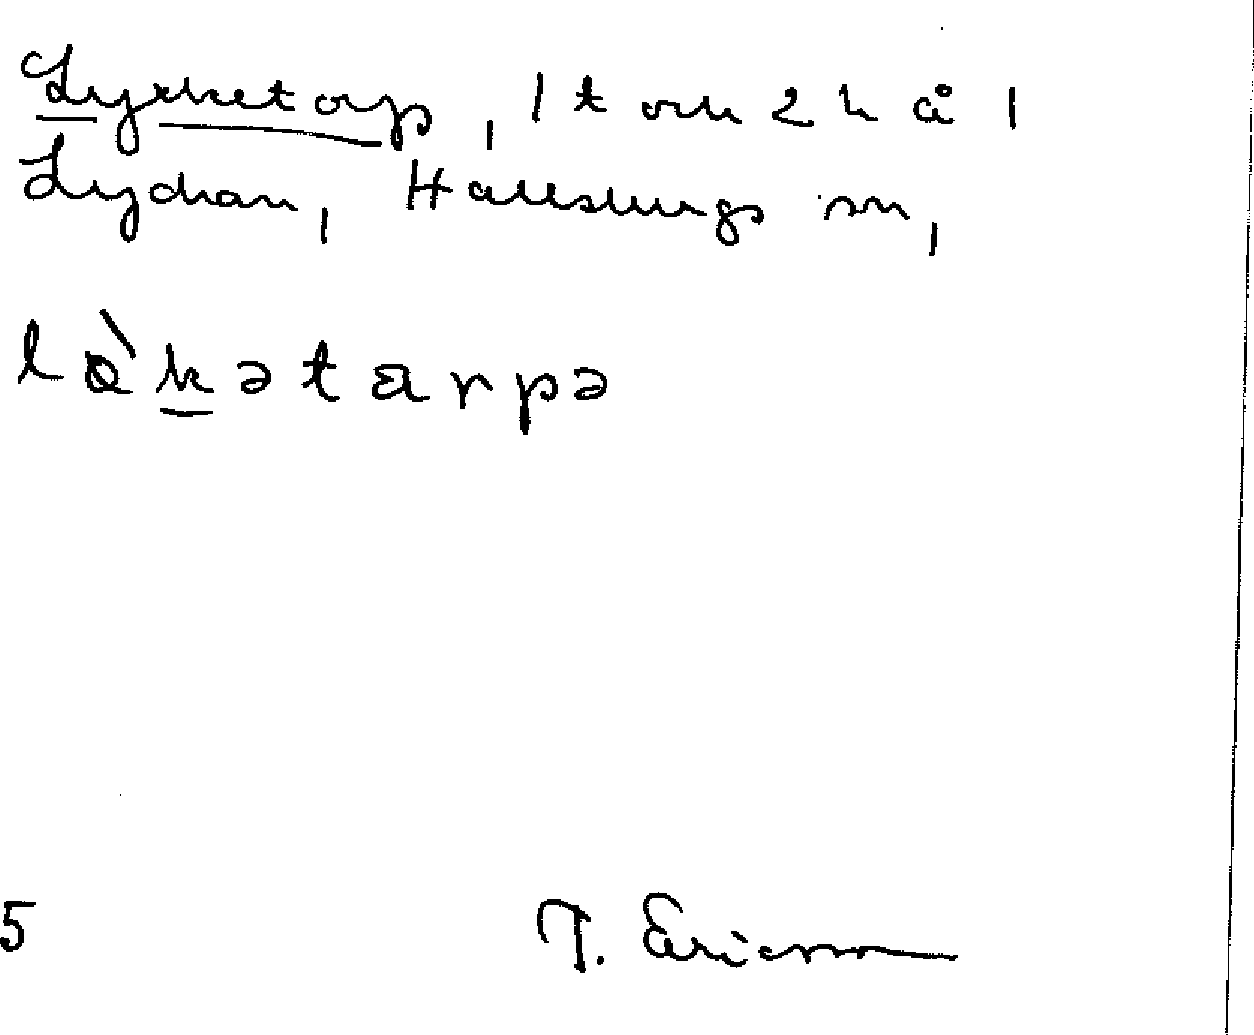 Lycketorp, 1 t och 2 h å 1
Lyckan, Hallsbergs sn,
lø̀kətarpə
5
T. Ericsson